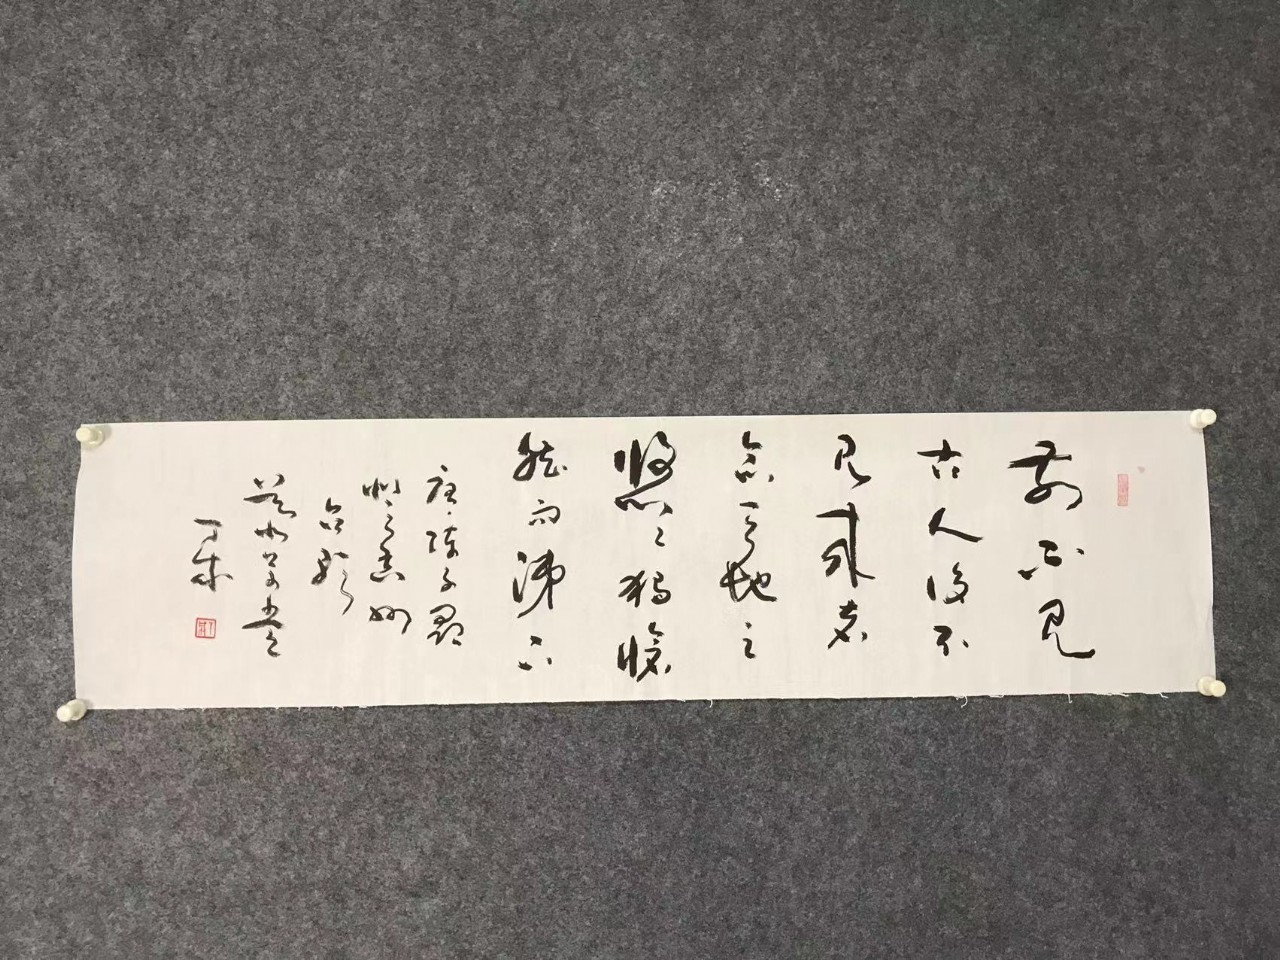 前不見
古人後不
見來者
念天地之
悠〻獨愴
然而涕下
唐陳子昂
登幽州
台歌